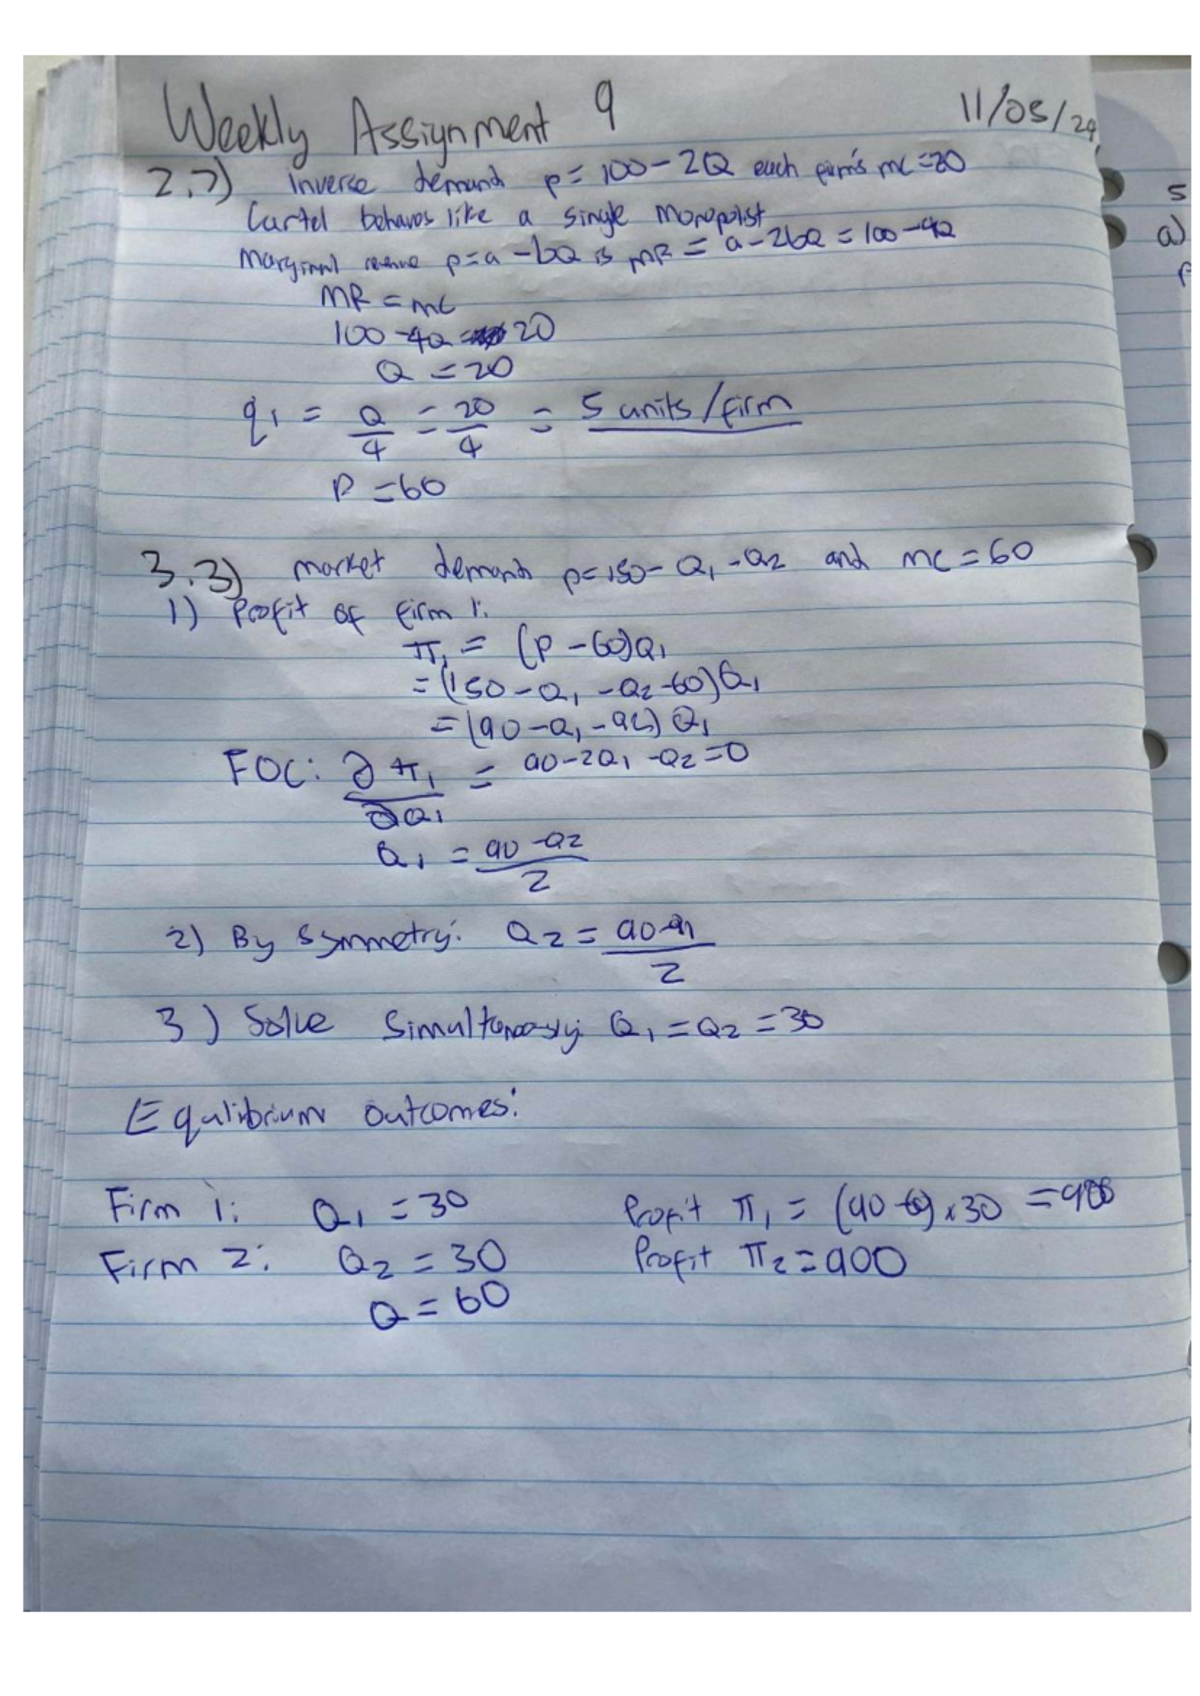 Weekly Assignment 9
11/05/24
2.7) Inverse demand p = 100 - 2Q each firm's mc = 20
Cartel behaves like a single monopolist
Marginal revenue p = a - bQ is MR = a - 2bQ = 100 - 4Q
MR = mc
100 - 4Q = 20
Q = 20
q1 = Q/4 = 20/4 = 5 units/firm
P = 60
3.3) market demand p = 150 - Q1 - Q2 and mc = 60
1) Profit of firm 1:
π1 = (P - 60)Q1
= (150 - Q1 - Q2 - 60)Q1
= (90 - Q1 - Q2) Q1
FOC: ∂π1/∂Q1 = 90 - 2Q1 - Q2 = 0
Q1 = 90 - Q2/2
2) By symmetry: Q2 = 90 - Q1/2
3) Solve Simultaneously: Q1 = Q2 = 30
Equlibrium outcomes:
Firm 1: Q1 = 30 Profit π1 = (90 - 60) x 30 = 900
Firm 2: Q2 = 30 Profit π2 = 900
Q = 60
5
a)